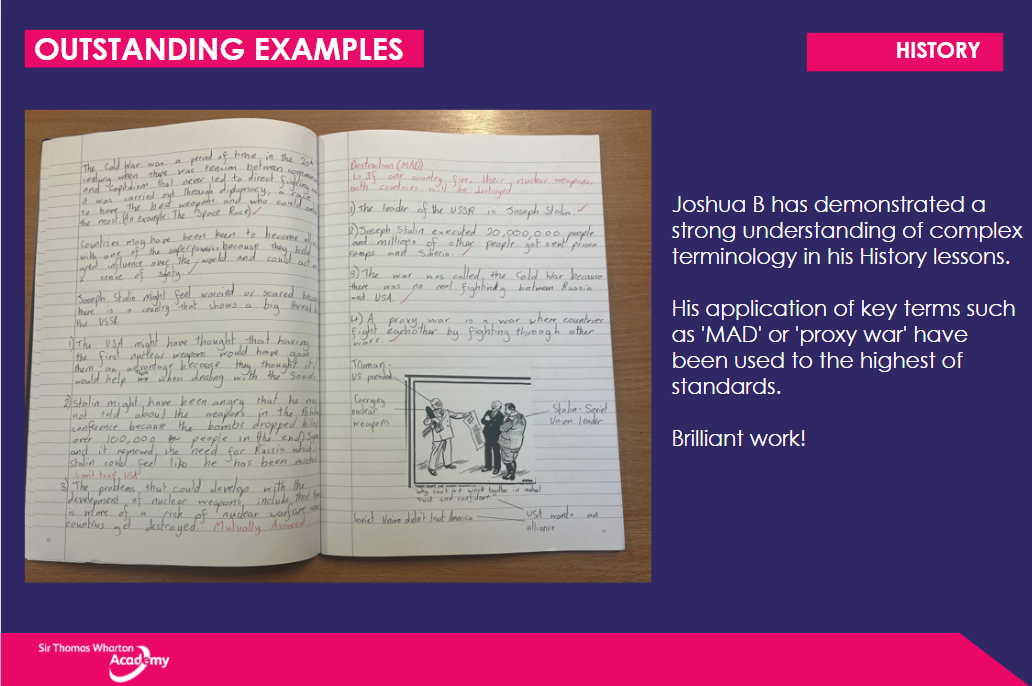 OUTSTANDING EXAMPLES
HISTORY
The Cold War was a period of time in the 20th
century when there was tension between
and capitalism that never led to direct fighting
it was carried out through diplomacy, a race
to have the best weapons and who could
the most (An example: The Space Race)
Countries may have been keen to become
with one of the superpowers because they held
great influence over the world and could
a sense of safety.
Joseph Stalin might feel worried or scared
there is a country that shows a big threat
the USSR
1) The USA might have thought that having
the first nuclear weapons would have
them an advantage because they thought it
would help when dealing with the
2) Stalin might have been angry that he
not told about the weapons in the
conference because the bombs dropped
over 100,000 people in the end
and it removed the need for Russia
Stalin could feel like he has been
can't trust USA
3) The problems that could develop with the
development of nuclear weapons include that
is more of a risk of nuclear warfare
countries get destroyed. Mutually Assured
Destruction (MAD)
If one country fires their nuclear weapons,
both countries will be destroyed
1) The leader of the USSR is Joseph Stalin
2) Joseph Stalin executed 20,000,000 people
and millions of other people got sent prison
camps and Siberia.
3) The war was called the Cold War because
there was no real fighting between Russia
and USA.
4) A proxy war is a war where countries
fight eachother by fighting through other
wars.
Truman -
US president
Carrying
nuclear
weapons
Stalin - Soviet
Union leader
Why can't we work together in mutual
trust and confidence
Soviet Union didn't trust America
USA wants an
alliance
Joshua B has demonstrated a
strong understanding of complex
terminology in his History lessons.
His application of key terms such
as 'MAD' or 'proxy war' have
been used to the highest of
standards.
Brilliant work!
Sir Thomas Wharton
Academy